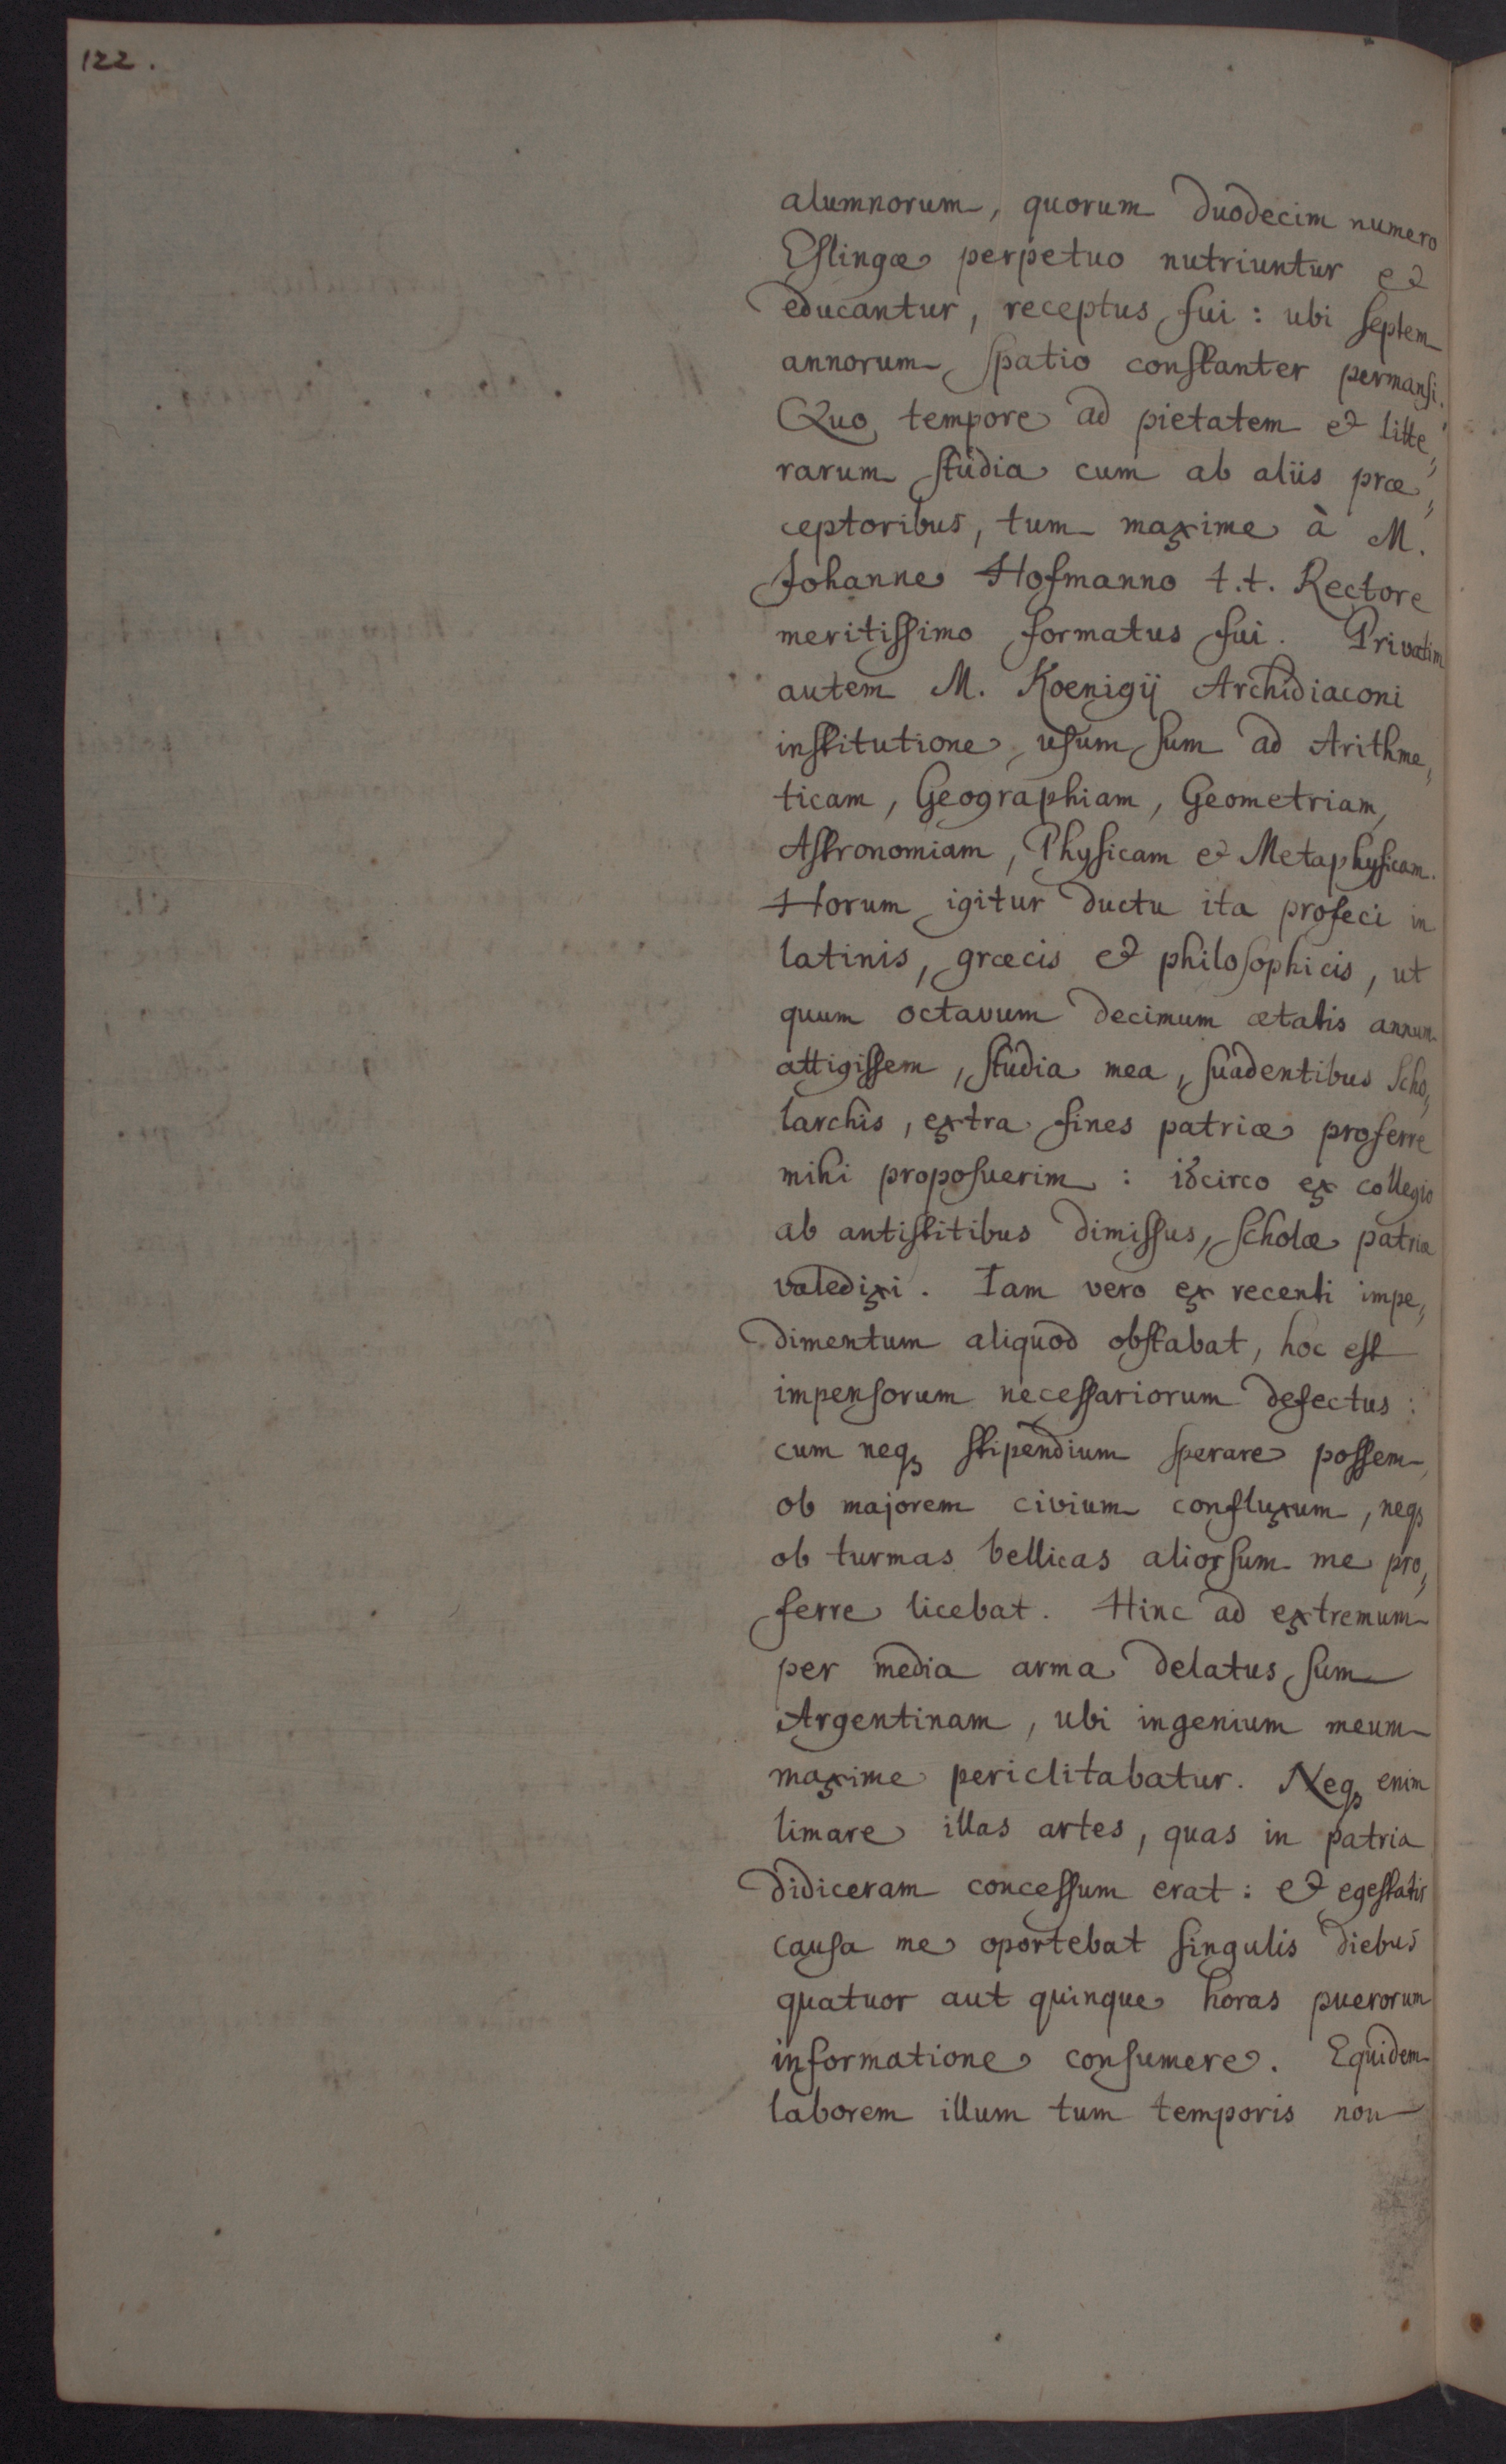 122.
alumnorum, quorum duodecim numero
Eslingæ perpetuo nutriuntur et
educantur, receptus fui: ubi septem
annorum spatio constanter permansi.
Quo tempore ad pietatem et litte„
rarum studia cum ab aliis præ„
ceptoribus, tum maxime à M.
Johanne Hofmanno t.t. Rectore
meritissimo formatus fui. Privatim
autem M. Koenigij Archidiaconi
institutione usum sum ad Arithme„
ticam, Geographiam, Geometriam,
Astronomiam, Physicam et Metaphysicam.
Horum igitur ductu ita profeci in
latinis, græcis et philosophicis, ut
quum octavum decimum ætatis annum
attigissem, studia mea, suadentibus Scho„
larchis, extra fines patriæ proferre
mihi proposuerim: idcirco ex collegio
ab antistitibus dimissus, scholæ patriæ
valedixi. Iam vero ex recenti impe„
dimentum aliquod obstabat, hoc est
impensorum necessariorum defectus:
cum neqꝫ stipendium sperare possem
ob majorem civium confluxum, neqꝫ
ob turmas bellicas aliorsum me pro„
ferre licebat. Hinc ad extremum
per media arma delatus sum
Argentinam, ubi ingenium meum
maxime periclitabatur. Neqꝫ enim
limare illas artes, quas in patria
didiceram concessum erat: et egestatis
causa me oportebat singulis diebus
quatuor aut quinque horas puerorum
informatione consumere. Equidem
laborem illum tum temporis non